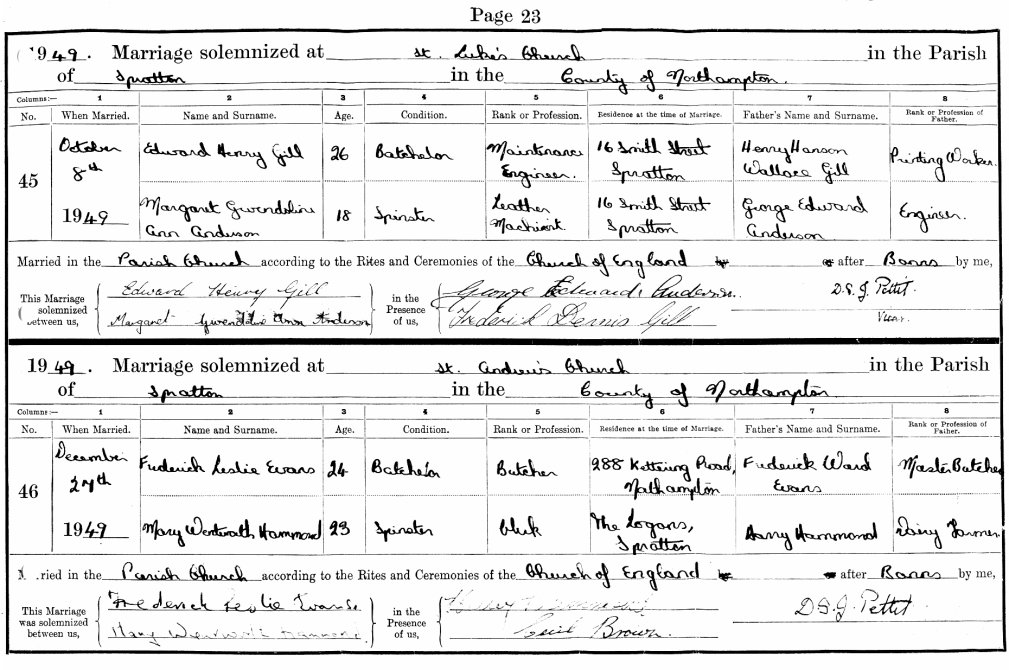 Page 23
1949. Marriage solemnized at St. Luke's Church in the Parish
of Spratton in the County of Northampton.
Columns:— 1 2 3 4 5 6 7 8
No. When Married. Name and Surname. Age. Condition. Rank or Profession. Residence at the time of Marriage. Father's Name and Surname. Rank or Profession of Father.
45
October 8th 1949
Edward Henry Gill 26 Batchelor Maintenance Engineer. 16 Smith Street Spratton Henry Hanson Wallace Gill Printing Worker.
Margaret Gwendoline Ann Anderson 18 Spinster Leather Machinist. 16 Smith Street Spratton George Edward Anderson Engineer.
Married in the Parish Church according to the Rites and Ceremonies of the Church of England after Banns by me,
This Marriage solemnized between us,
Edward Henry Gill
Margaret Gwendoline Ann Anderson
in the Presence of us,
George Edward Anderson.
Frederick Dennis Gill
D.S.J. Pettit.
Vicar.
1949. Marriage solemnized at St. Andrew's Church in the Parish
of Spratton in the County of Northampton
Columns:— 1 2 3 4 5 6 7 8
No. When Married. Name and Surname. Age. Condition. Rank or Profession. Residence at the time of Marriage. Father's Name and Surname. Rank or Profession of Father.
46
December 27th 1949
Frederick Leslie Evans 24 Batchelor Butcher 288 Kettering Road, Northampton Frederick Ward Evans Master Butcher
Mary Wentworth Hammond 23 Spinster Clerk The Logans, Spratton Harry Hammond Dairy Farmer
ried in the Parish Church according to the Rites and Ceremonies of the Church of England after Banns by me,
This Marriage was solemnized between us,
Frederick Leslie Evans
Mary Wentworth Hammond
in the Presence of us,
Cecil Brown.
D.S.J. Pettit